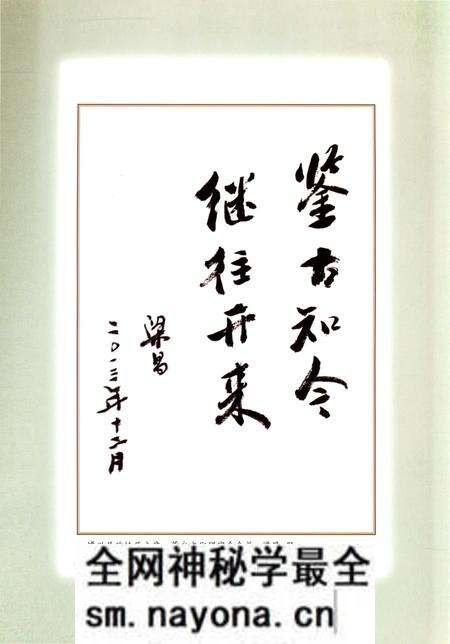 鉴古知今
继往开来
梁昌
二〇一三年十二月
全网神秘学最全
sm.nayona.cn